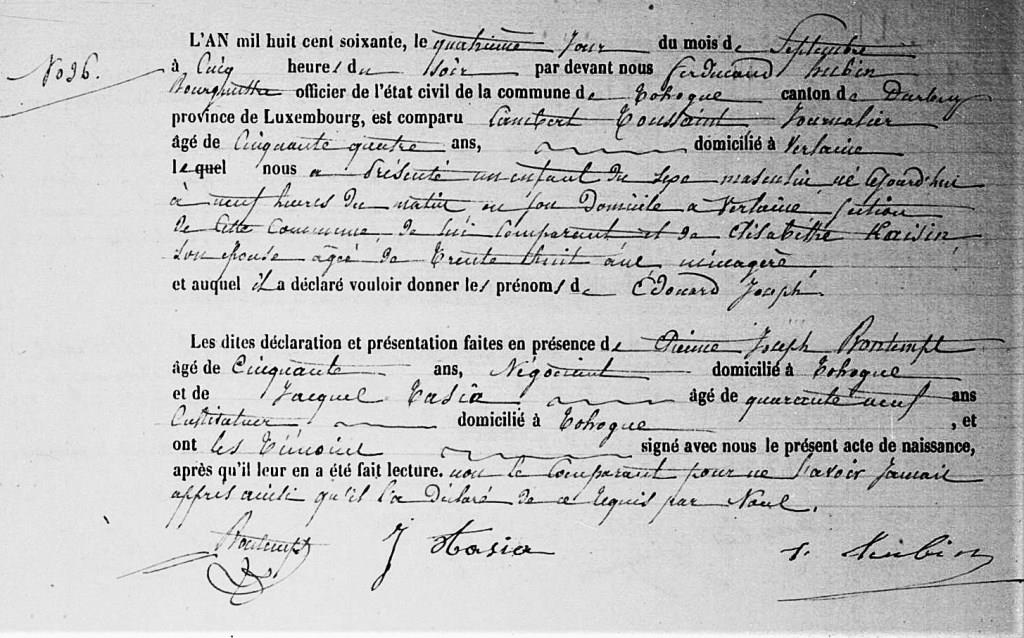 L'AN mil huit cent soixante, le quatrième jour du mois de Septembre
No 26.
à Cinq heures du soir par devant nous Ferdinand hubin
Bourgmestre officier de l'état civil de la commune de Tohogne canton de Durbuy
province de Luxembourg, est comparu Lambert Toussaint Journalier
âgé de Cinquante quatre ans, domicilié à Verlaine
lequel nous a Présenté un enfant du sexe masculin né aujourd'hui
à neuf heures du matin en son Domicile a Verlaine section
de cette Commune, de lui Comparant et de Elisabethe Raisin,
son épouse âgée de Trente huit ans, ménagère,
et auquel il a déclaré vouloir donner les prénoms de Édouard Joseph.
Les dites déclaration et présentation faites en présence de Pierre Joseph Bontemps
âgé de Cinquante ans, Négociant domicilié à Tohogne
et de Jacques Tasia âgé de quarante neuf ans
Cultivateur domicilié à Tohogne , et
ont les Témoins signé avec nous le présent acte de naissance,
après qu'il leur en a été fait lecture. non le Comparant pour ne savoir Jamais
appris ainsi qu'il l'a Déclaré de ce requis par Nous.
Bontemps J Tasia f. hubin